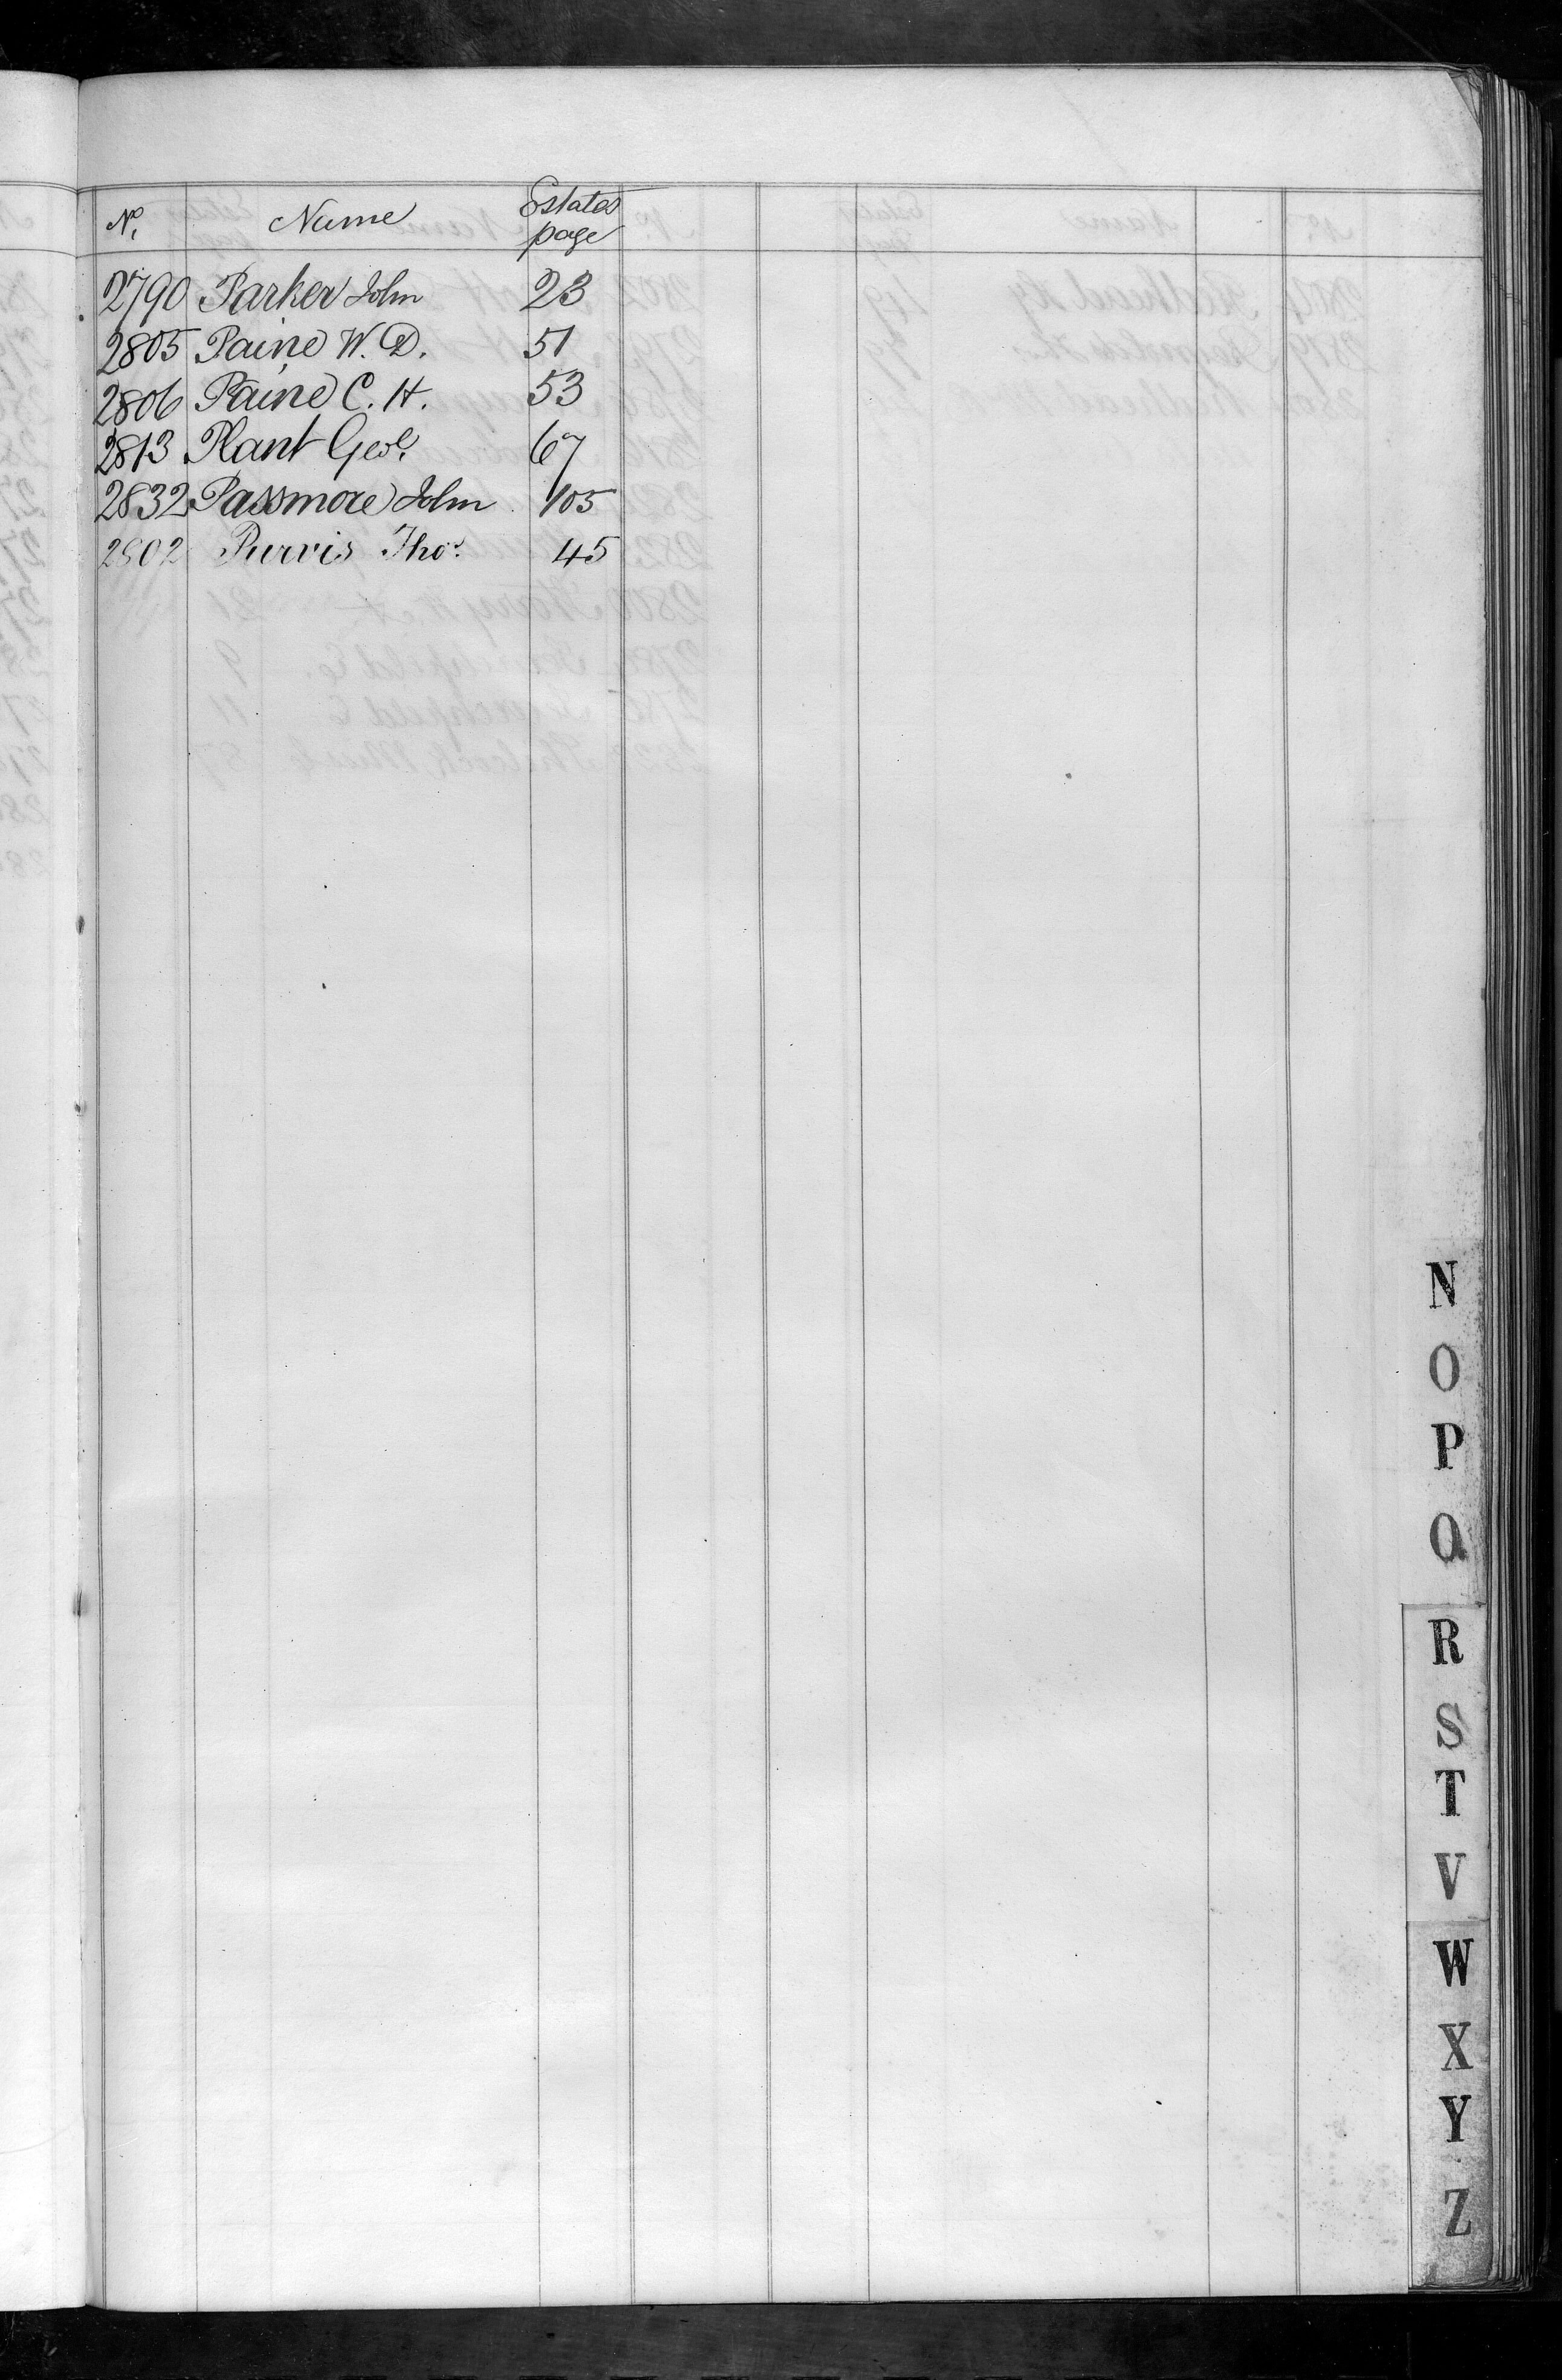 No. Name Estates page
2790 Parker John 23
2805 Paine W. D. 51
2806 Paine C. H. 53
2813 Plant Geo. 67
2832 Passmore John 105
2802 Purvis Tho. 45
N
O
P
Q
R
S
T
V
W
X
Y
Z